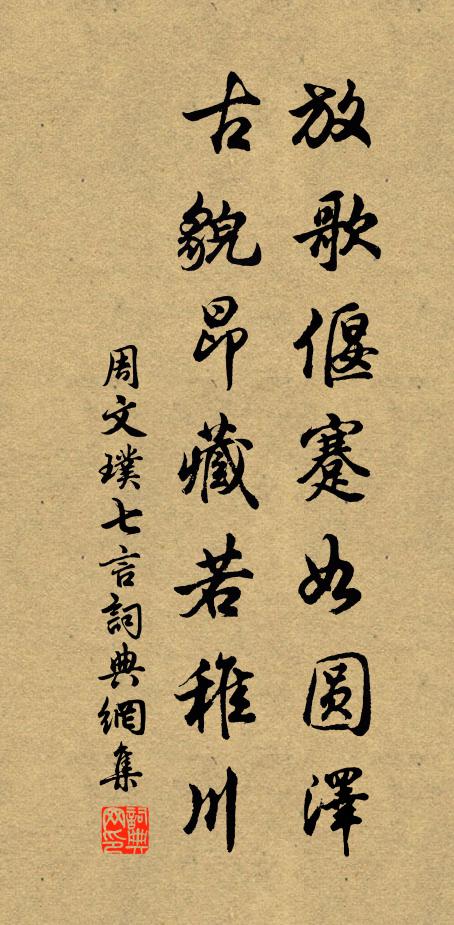 放歌偃蹇如圆澤
古貌昂藏若稚川
周文璞七言詞典網集
詞典網印